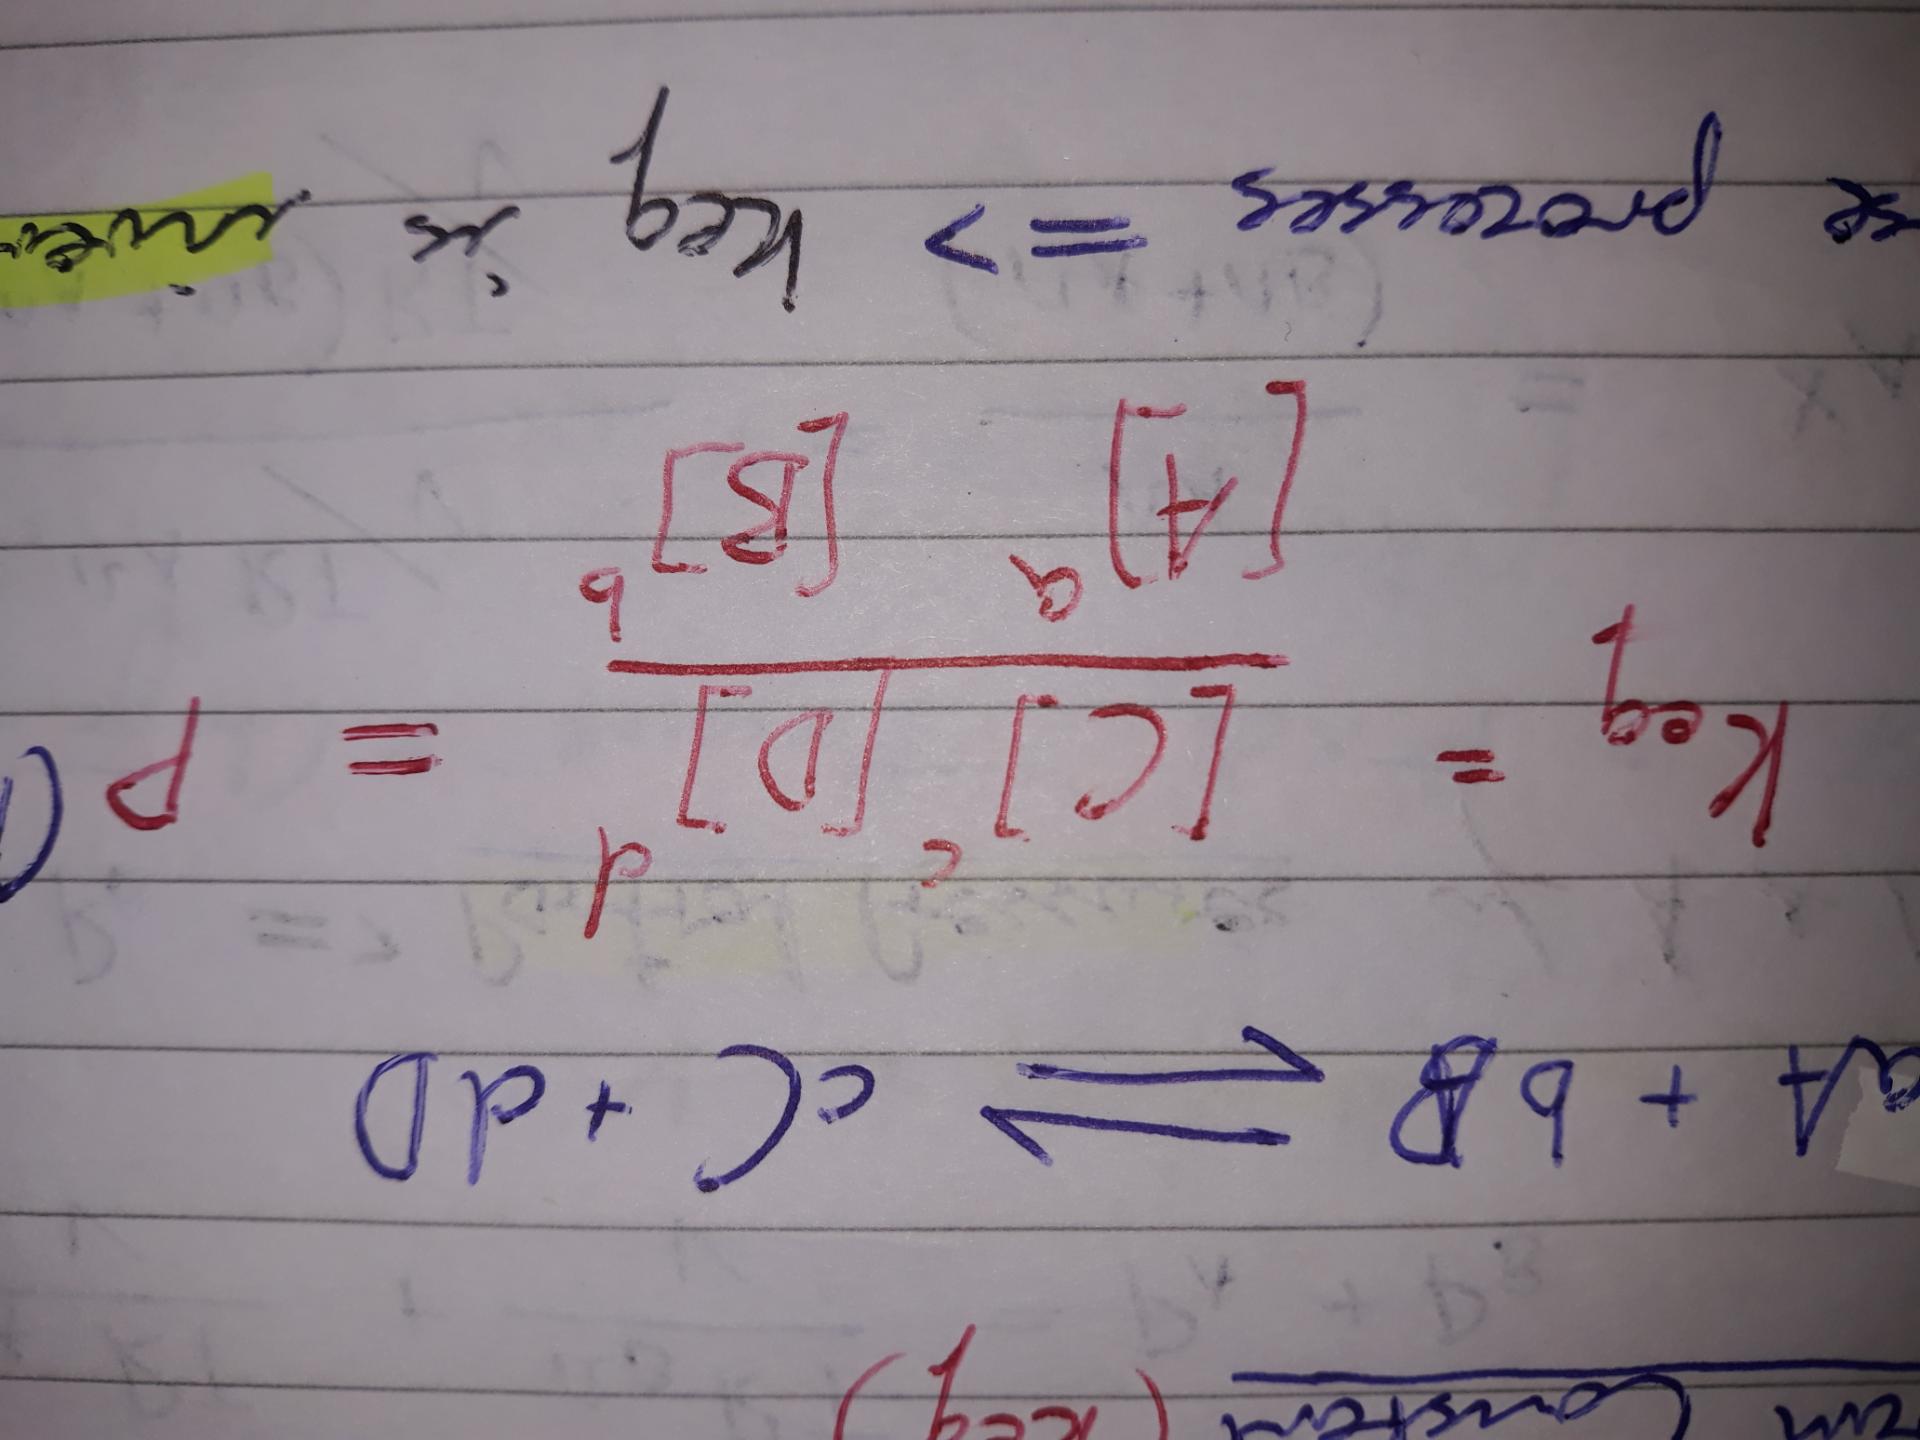 Constant (Keq)
aA + bB ⇌ cC + dD
Keq = [C]^c [D]^d / [A]^a [B]^b = P(
processes => Keq is